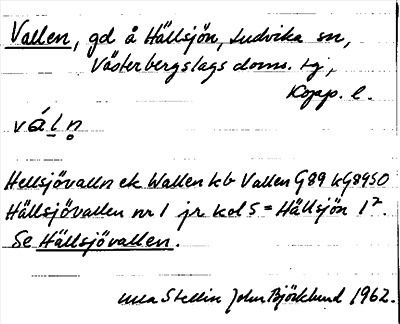 Vallen, gd å Hällsjön, Ludvika sn,
Västerbergslags doms. tg,
Kopp. l.
váln
Hellsjövalln ek Wallen kb Vallen G89 kG8950
Hällsjövallen nr 1 jr kol 5 = Hällsjön 1².
Se Hällsjövallen.
Stellin John Björklund 1962.